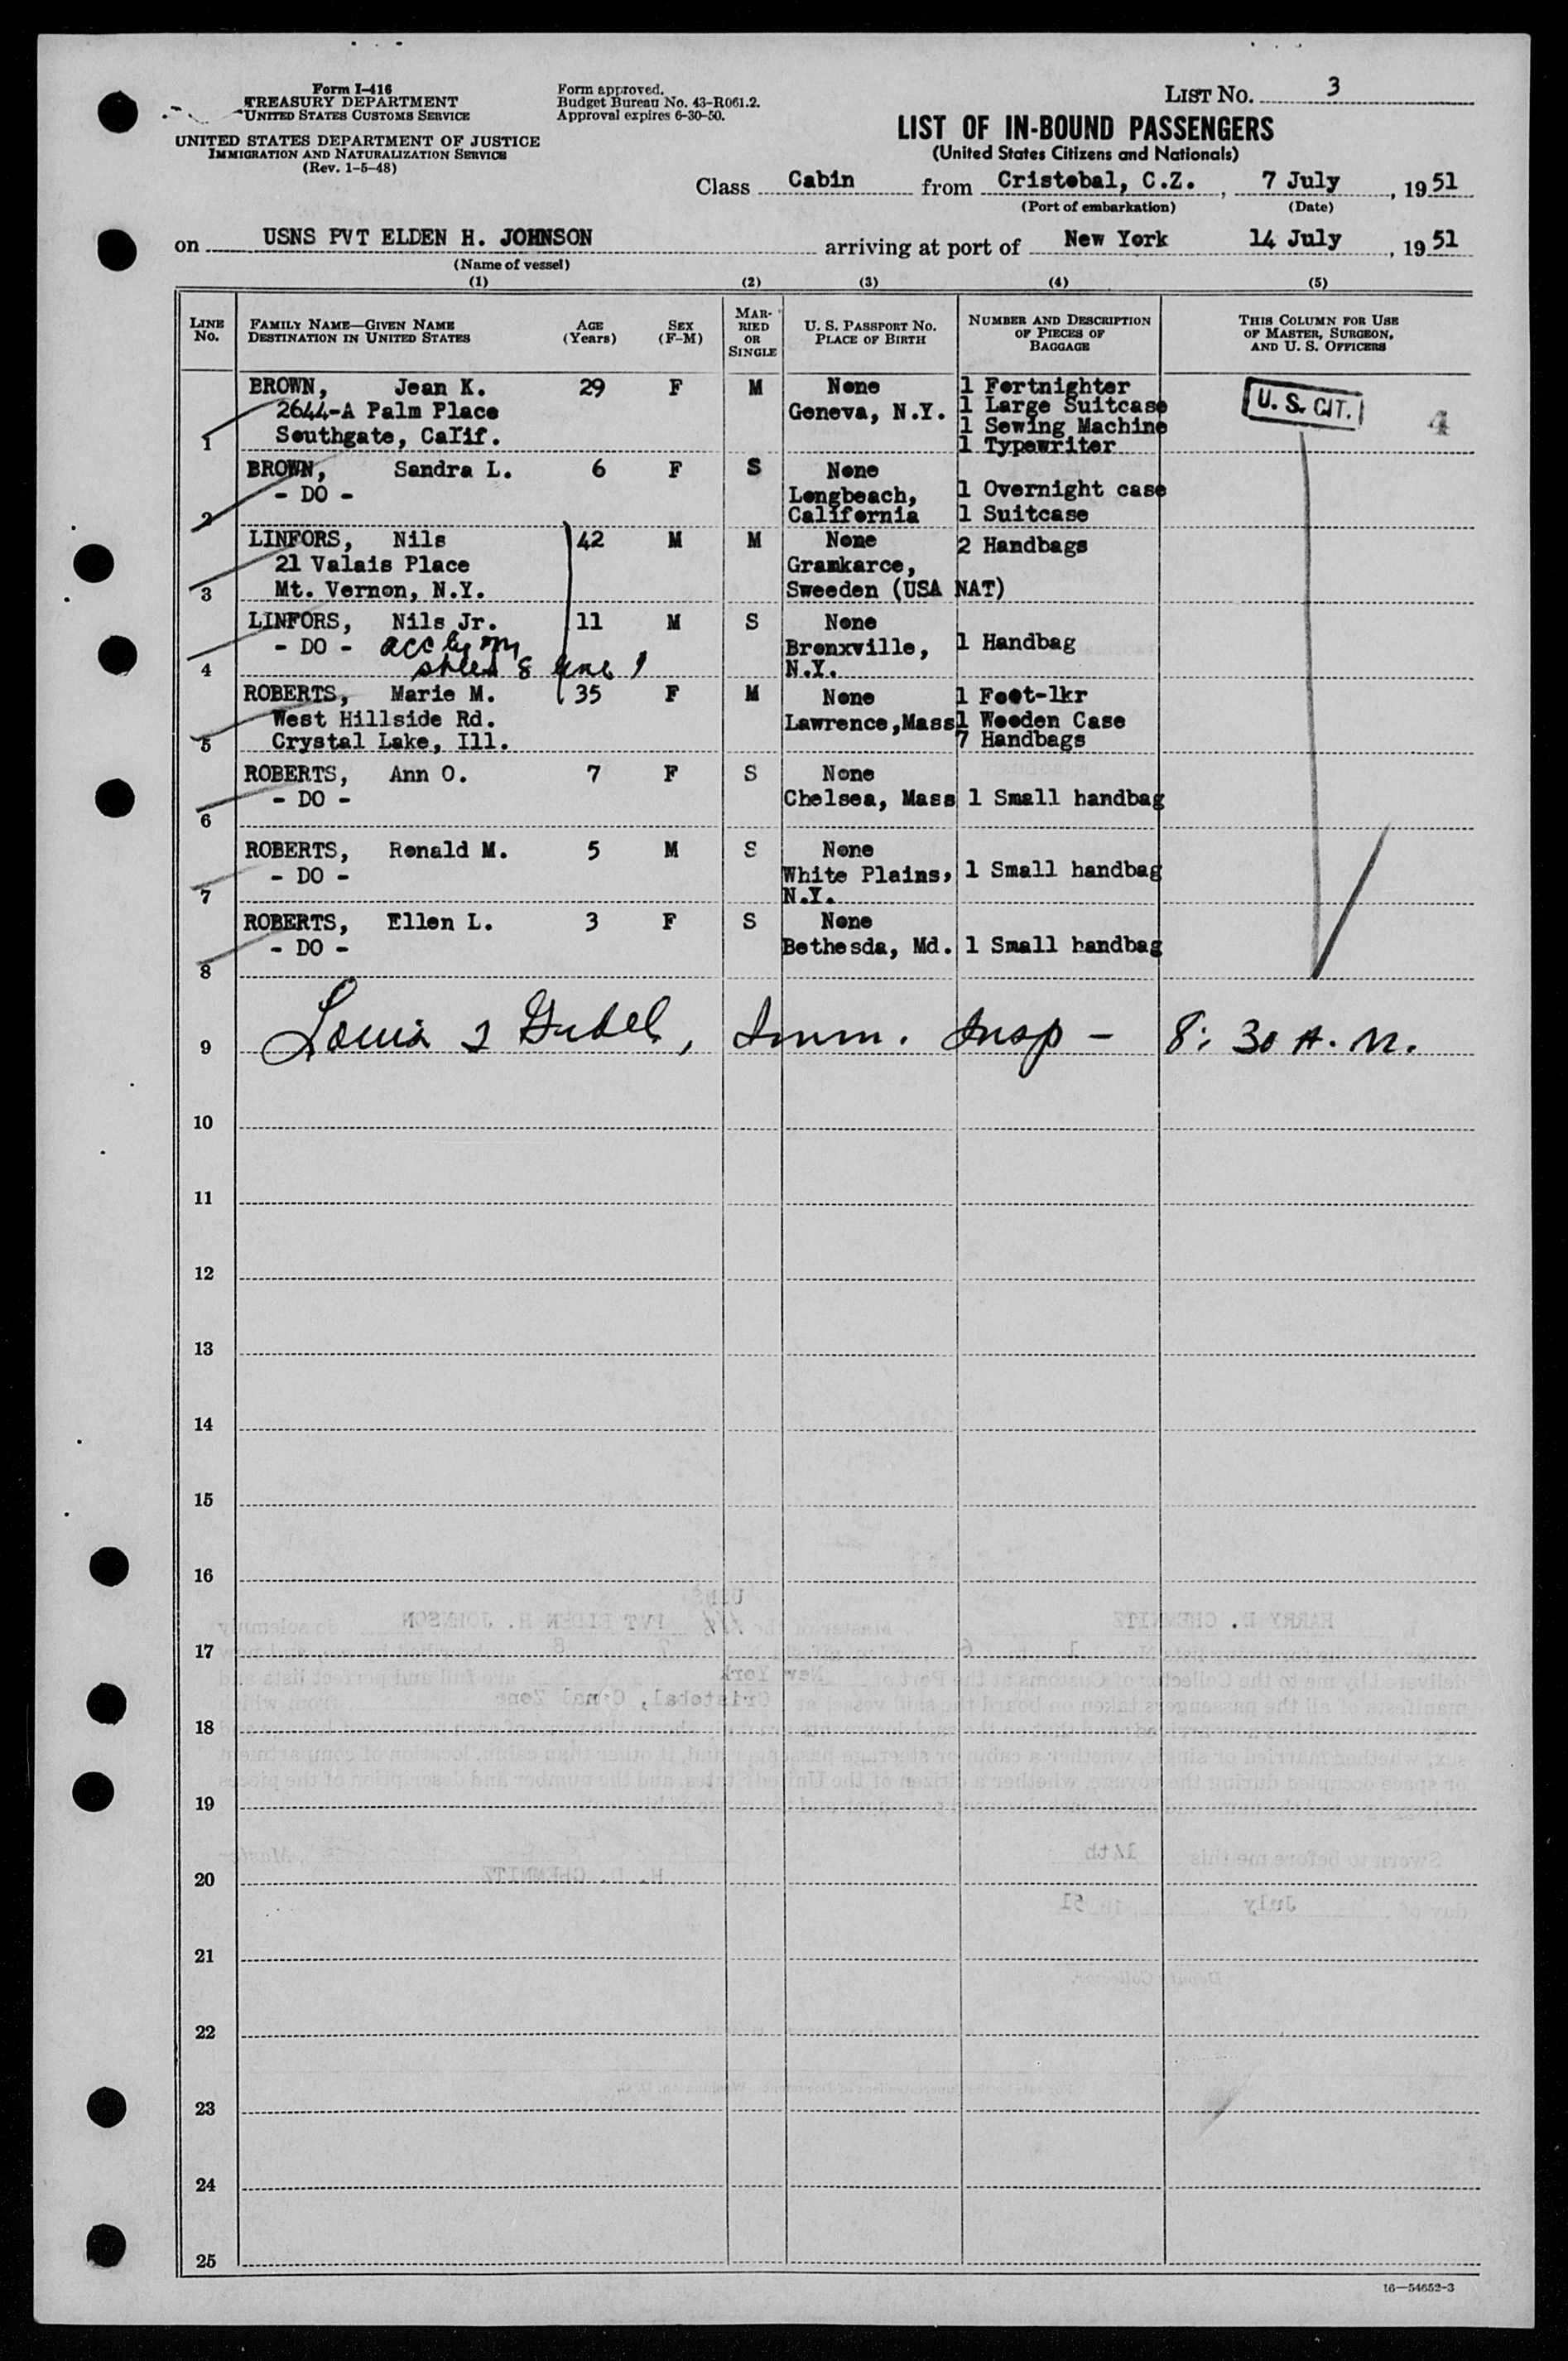 Form I-416
TREASURY DEPARTMENT
UNITED STATES CUSTOMS SERVICE
UNITED STATES DEPARTMENT OF JUSTICE
IMMIGRATION AND NATURALIZATION SERVICE
(Rev. 1-5-48)
Form approved.
Budget Bureau No. 43-R061.2.
Approval expires 6-30-50.
LIST No. 3
LIST OF IN-BOUND PASSENGERS
(United States Citizens and Nationals)
Class Cabin from Cristobal, C.Z., 7 July, 1951
(Port of embarkation) (Date)
on USNS PVT ELDEN H. JOHNSON arriving at port of New York 14 July, 1951
(Name of vessel)
(1) (2) (3) (4) (5)
LINE No. FAMILY NAME—GIVEN NAME DESTINATION IN UNITED STATES AGE (Years) SEX (F-M) MARRIED OR SINGLE U. S. PASSPORT No. PLACE OF BIRTH NUMBER AND DESCRIPTION OF PIECES OF BAGGAGE THIS COLUMN FOR USE OF MASTER, SURGEON, AND U. S. OFFICERS
BROWN, Jean K. 29 F M None 1 Fortnighter
2644-A Palm Place Geneva, N.Y. 1 Large Suitcase U. S. CIT. 4
Southgate, Calif. 1 Sewing Machine
1 1 Typewriter
BROWN, Sandra L. 6 F S None
- DO - Longbeach, 1 Overnight case
2 California 1 Suitcase
LINFORS, Nils 42 M M None 2 Handbags
21 Valais Place Gramkarce,
3 Mt. Vernon, N.Y. Sweeden (USA NAT)
LINFORS, Nils Jr. 11 M S None
- DO - acc by Bronxville, 1 Handbag
4 sheet 8 line 1 N.Y.
ROBERTS, Marie M. 35 F M None 1 Foot-lkr
West Hillside Rd. Lawrence,Mass 1 Wooden Case
5 Crystal Lake, Ill. 7 Handbags
ROBERTS, Ann O. 7 F S None
- DO - Chelsea, Mass 1 Small handbag
6
ROBERTS, Ronald M. 5 M S None
- DO - White Plains, 1 Small handbag
7 N.Y.
ROBERTS, Ellen L. 3 F S None
- DO - Bethesda, Md. 1 Small handbag
8
9 Louis Imm. Insp - 8:30 A.M.
10
11
12
13
14
15
16
17
18
19
20
21
22
23
24
25
16—54652-3